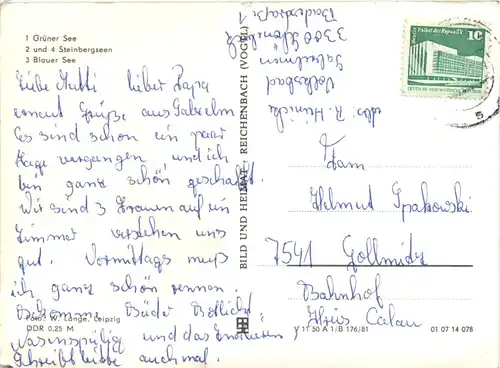 1 Grüner See
2 und 4 Steinbergseen
3 Blauer See
Liebe Mutti lieber Papa
erneut Grüße aus
Es sind schon ein paar
Tage vergangen und ich
bin ganz schön geschafft.
Wir sind 3 Frauen auf ein
Zimmer verstehen uns
gut. Vormittags muß
ich ganz schön rennen.
Bekomme Bäder
und das
Schreibt bitte auch mal.
Foto: W. Lange, Leipzig
DDR 0,25 M
BILD UND HEIMAT REICHENBACH (VOGTL)
Abs. R. Heinicke
Volksbad
3300 Schönebeck
Palast der Republik
10
DEUTSCHE DEMOKRATISCHE REPUBLIK
5
Fam
Helmut Spakowski
7541 Gollmitz
Bahnhof
Kreis Calau
V 11 50 A 1/B 176/81
01 07 14 078